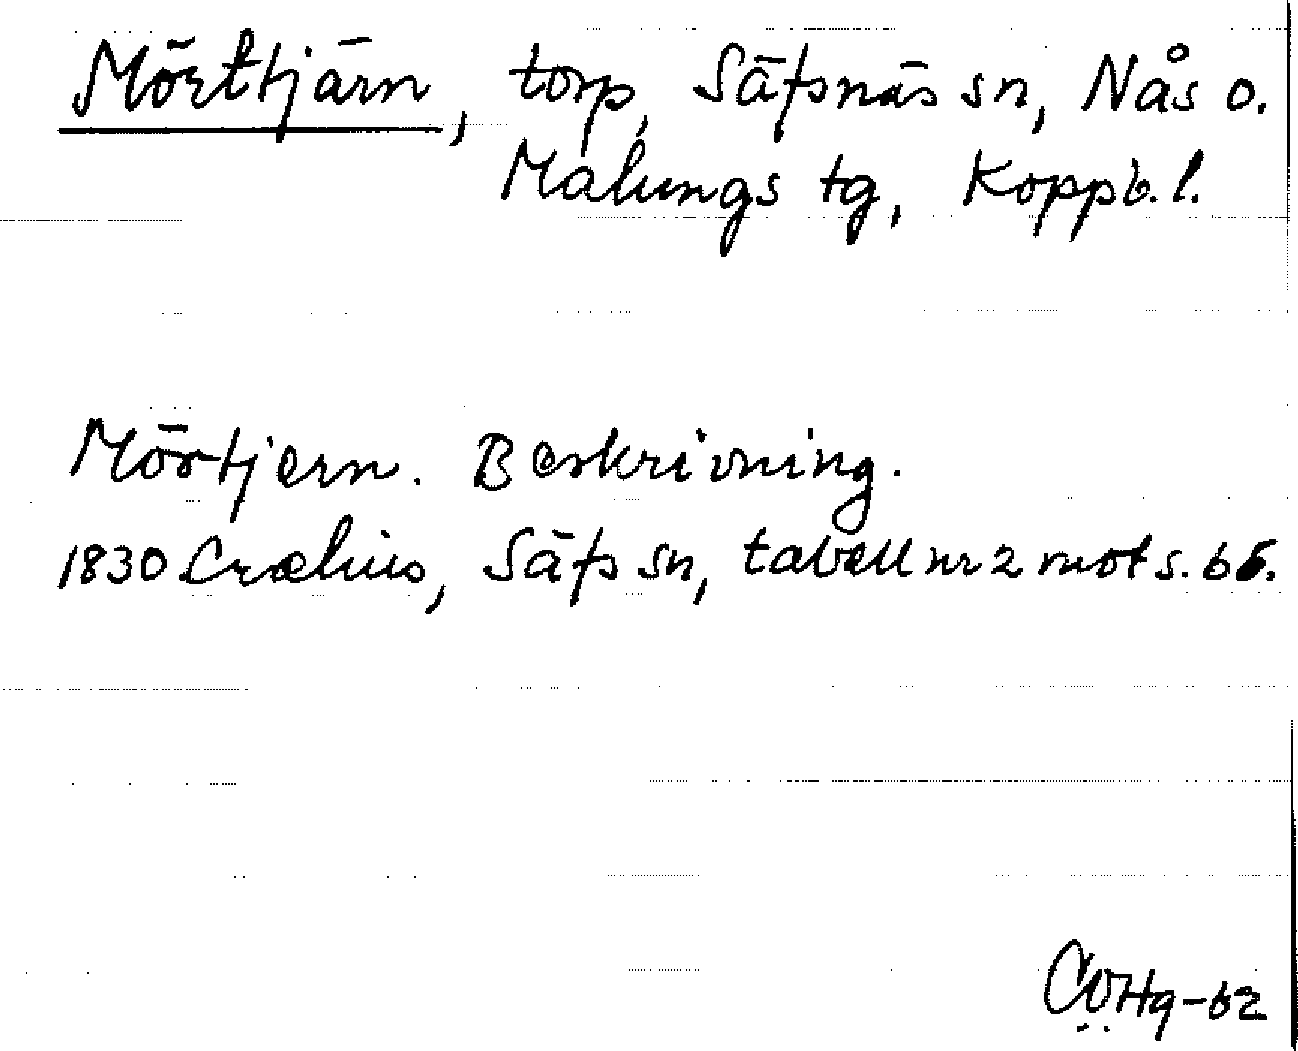 Mörttjärn, torp, Säfsnäs sn, Nås o.
Malungs tg, Koppb. l.
Mörtjern. Beskrivning.
1830 Crælius, Säfs sn, tabell nr 2 mot s. 66.
CÖHg-62